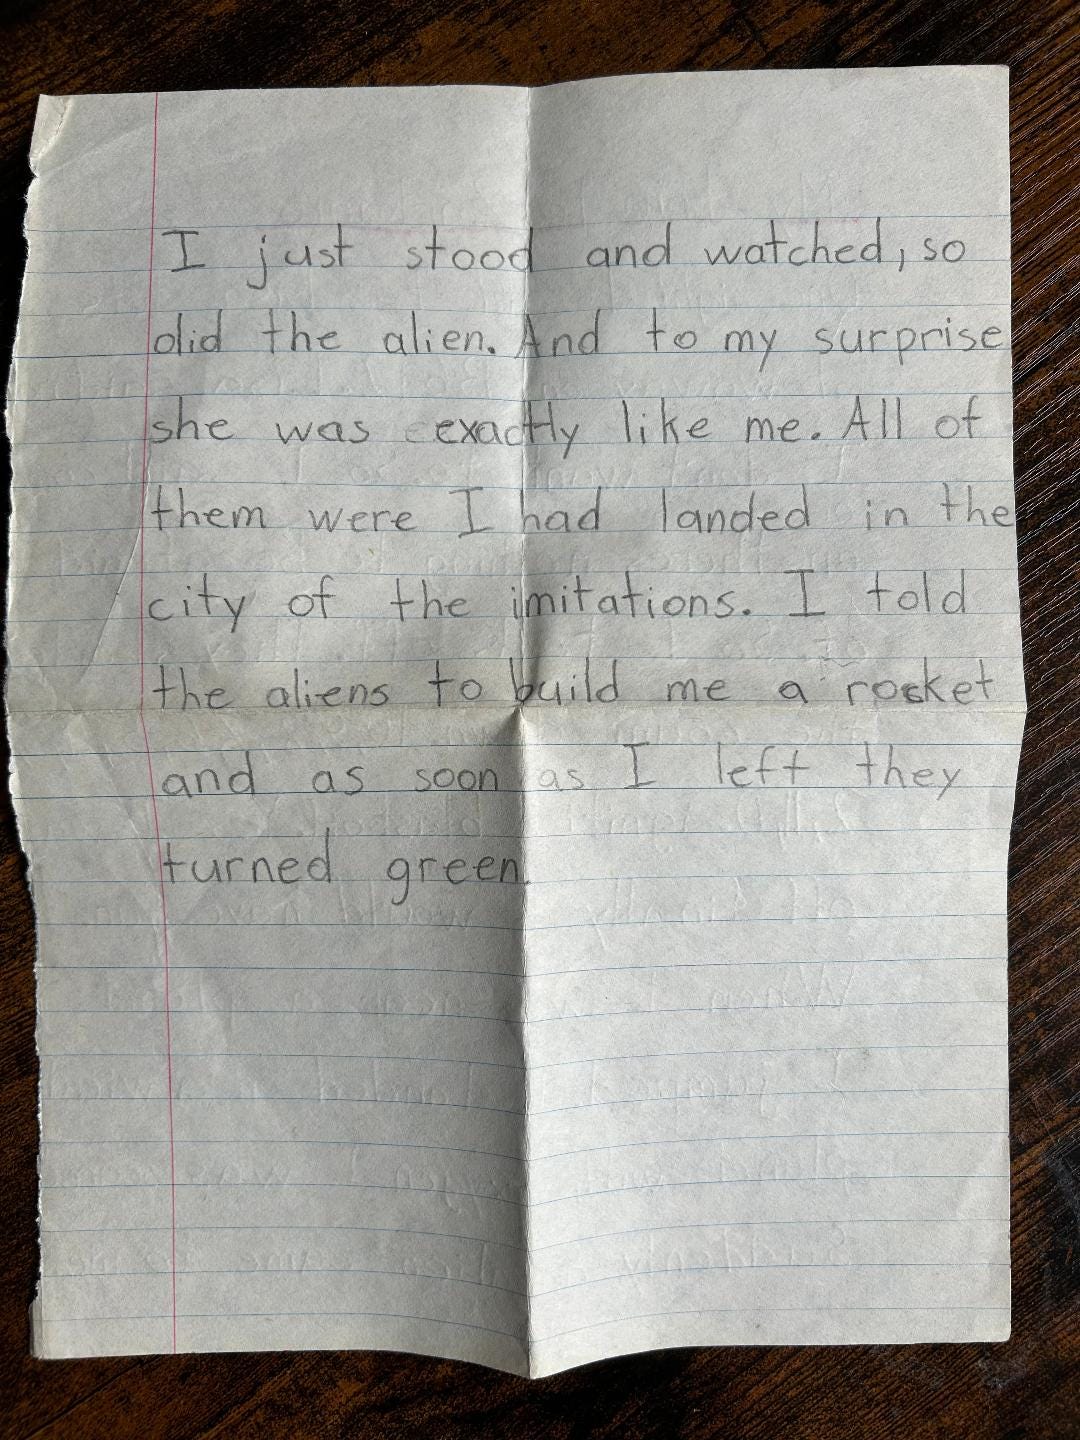 I just stood and watched, so
did the alien. And to my surprise
she was exactly like me. All of
them were I had landed in the
city of the imitations. I told
the aliens to build me a rocket
and as soon as I left they
turned green.